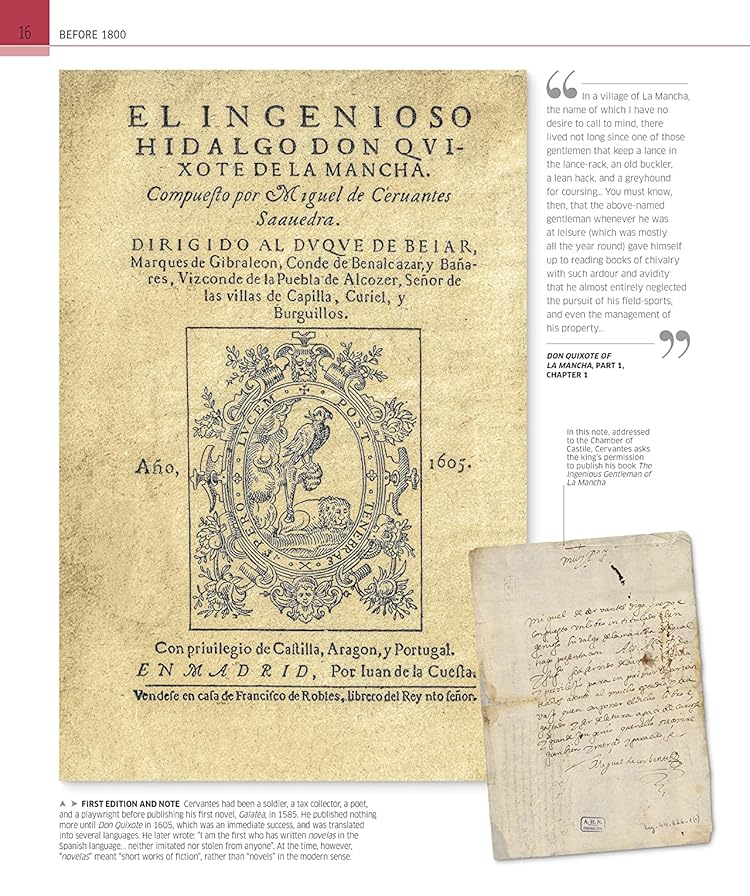 16
BEFORE 1800
EL INGENIOSO
HIDALGO DON QVI-
XOTE DE LA MANCHA.
Compueſto por Miguel de Ceruantes
Saauedra.
DIRIGIDO AL DVQVE DE BEIAR,
Marques de Gibraleon, Conde de Benalcazar, y Baña-
res, Vizconde de la Puebla de Alcozer, Señor de
las villas de Capilla, Curiel, y
Burguillos.
POST TENEBRAS SPERO LVCEM
Año,
1605.
Con priuilegio de Caſtilla, Aragon, y Portugal.
EN MADRID, Por Iuan de la Cueſta.
Vendeſe en caſa de Francisco de Robles, librero del Rey nro ſeñor.
“ In a village of La Mancha,
the name of which I have no
desire to call to mind, there
lived not long since one of those
gentlemen that keep a lance in
the lance-rack, an old buckler,
a lean hack, and a greyhound
for coursing... You must know,
then, that the above-named
gentleman whenever he was
at leisure (which was mostly
all the year round) gave himself
up to reading books of chivalry
with such ardour and avidity
that he almost entirely neglected
the pursuit of his field-sports,
and even the management of
his property... ”
DON QUIXOTE OF
LA MANCHA, PART 1,
CHAPTER 1
In this note, addressed
to the Chamber of
Castile, Cervantes asks
the king's permission
to publish his book The
Ingenious Gentleman of
La Mancha
Miguel de cerbantes
A. H. N.
FIRST EDITION AND NOTE Cervantes had been a soldier, a tax collector, a poet,
and a playwright before publishing his first novel, Galatea, in 1585. He published nothing
more until Don Quixote in 1605, which was an immediate success, and was translated
into several languages. He later wrote: “I am the first who has written novelas in the
Spanish language... neither imitated nor stolen from anyone”. At the time, however,
“novelas” meant “short works of fiction”, rather than “novels” in the modern sense.